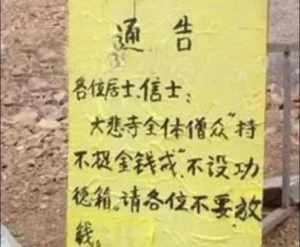 通告
各位居士、信士：
大悲寺全体僧众“持
不捉金钱戒”不设功
德箱。请各位不要放
钱。